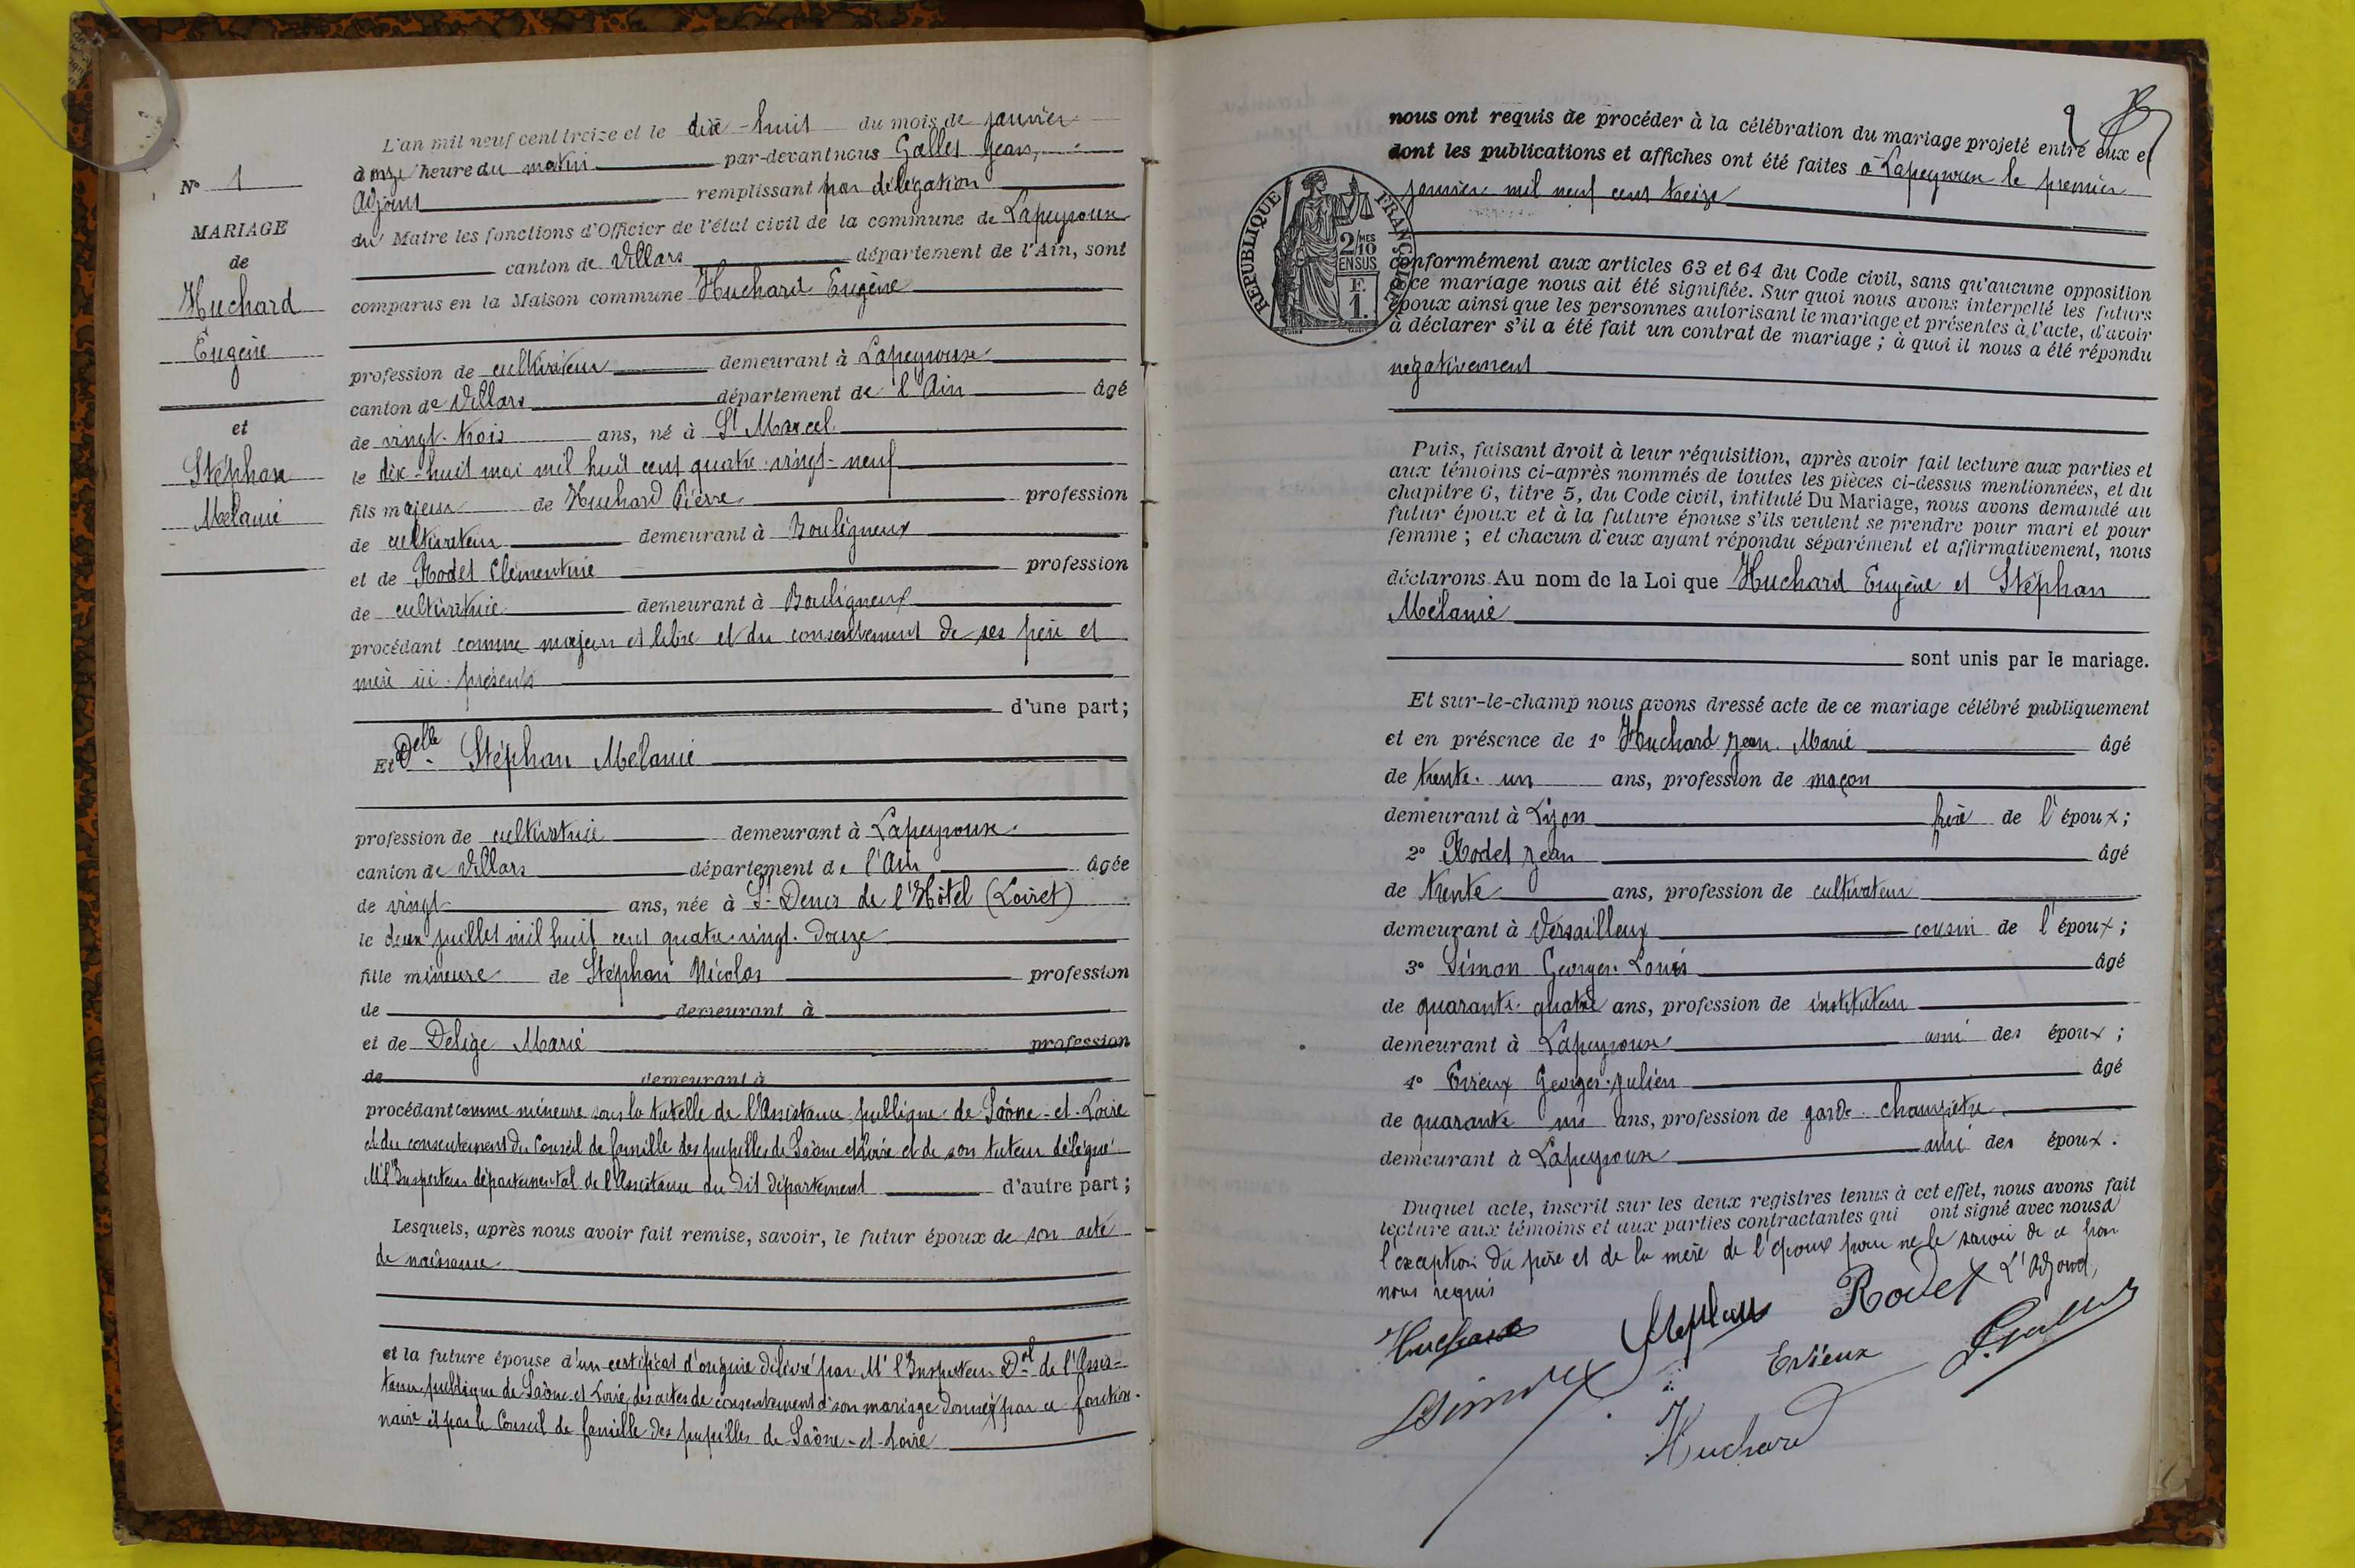 N° 1
MARIAGE
de
Huchard
Eugène
et
Stéphan
Mélanie
L'an mil neuf cent treize et le dix-huit du mois de janvier
à onze heure du matin par-devant nous Gallet Jean,
adjoint remplissant par délégation
du Maire les fonctions d'Officier de l'état civil de la commune de Lapeyrouse
canton de Villars département de l'Ain, sont
comparus en la Maison commune Huchard Eugène
profession de cultivateur demeurant à Lapeyrouse
canton de Villars département de l'Ain âgé
de vingt-trois ans, né à St Marcel
le dix-huit mai mil huit cent quatre-vingt-neuf
fils majeur de Huchard Pierre profession
de cultivateur demeurant à Bouligneux
et de Rodet Clémentine profession
de cultivatrice demeurant à Bouligneux
procédant comme majeur et libre et du consentement de ses père et
mère ici présents
d'une part;
Et Delle Stéphan Mélanie
profession de cultivatrice demeurant à Lapeyrouse
canton de Villars département de l'Ain âgée
de vingt ans, née à St Denis de l'Hôtel (Loiret)
le deux juillet mil huit cent quatre-vingt-douze
fille mineure de Stéphan Nicolas profession
de demeurant à
et de Delige Marie profession
de demeurant à
procédant comme mineure sous la tutelle de l'Assistance publique de Saône-et-Loire
et du consentement du Conseil de famille des pupilles de Saône et Loire et de son tuteur délégué
Mr l'Inspecteur départemental de l'Assistance du dit département d'autre part;
Lesquels, après nous avoir fait remise, savoir, le futur époux de son acte
de naissance
et la future épouse d'un certificat d'origine délivré par Mr l'Inspecteur Dal de l'Assis-
tance publique de Saône et Loire, des actes de consentement à son mariage donnés par ce fonction-
naire et par le Conseil de famille des pupilles de Saône-et-Loire
2
nous ont requis de procéder à la célébration du mariage projeté entre eux et
dont les publications et affiches ont été faites à Lapeyrouse le premier
janvier mil neuf cent treize
RÉPUBLIQUE FRANÇAISE
2/10MES
EN SUS
F.
1.
conformément aux articles 63 et 64 du Code civil, sans qu'aucune opposition
à ce mariage nous ait été signifiée. Sur quoi nous avons interpellé les futurs
époux ainsi que les personnes autorisant le mariage et présentes à l'acte, d'avoir
à déclarer s'il a été fait un contrat de mariage; à quoi il nous a été répondu
négativement
Puis, faisant droit à leur réquisition, après avoir fait lecture aux parties et
aux témoins ci-après nommés de toutes les pièces ci-dessus mentionnées, et du
chapitre 6, titre 5, du Code civil, intitulé Du Mariage, nous avons demandé au
futur époux et à la future épouse s'ils veulent se prendre pour mari et pour
femme; et chacun d'eux ayant répondu séparément et affirmativement, nous
déclarons Au nom de la Loi que Huchard Eugène et Stéphan
Mélanie
sont unis par le mariage.
Et sur-le-champ nous avons dressé acte de ce mariage célébré publiquement
et en présence de 1° Huchard Jean-Marie âgé
de trente-un ans, profession de maçon
demeurant à Lyon frère de l'époux;
2° Rodet Jean âgé
de trente ans, profession de cultivateur
demeurant à Versailleux cousin de l'époux;
3° Simon Georges-Louis âgé
de quarante-quatre ans, profession de instituteur
demeurant à Lapeyrouse ami des époux;
4° Evieux Georges-Julien âgé
de quarante un ans, profession de garde-champêtre
demeurant à Lapeyrouse ami des époux.
Duquel acte, inscrit sur les deux registres tenus à cet effet, nous avons fait
lecture aux témoins et aux parties contractantes qui ont signé avec nous à
l'exception du père et de la mère de l'époux pour ne le savoir de ce par
nous requis
L'adjoint,
Huchard Stephan Rodet
Simon Evieux J. Gallet
Huchard